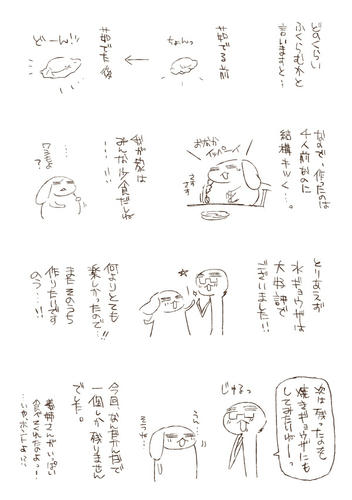 どのくらい
ふくらむかと
言いますと…
茹でる前
ちょんっ
茹でた後
どーん!!
なので、作ったのは
4人前なのに
結構キツく…。
おなか
イッパーイ
我が家は
みんな少食だしね
……
…
?
とりあえず
水ギョウザは
大好評で
ございました!!
何よりとても
楽しかったので!!
またそのうち
作りたいです
のう…!!
次は残ったのも
焼きギョウザにも
してみたいねーっ
じゅるっ
うん…
今回、なんだかんだで
一個しか残りません
でした。
義姉さんがいっぱい
食べてくれたのよっ…!
…いやホントよ…!